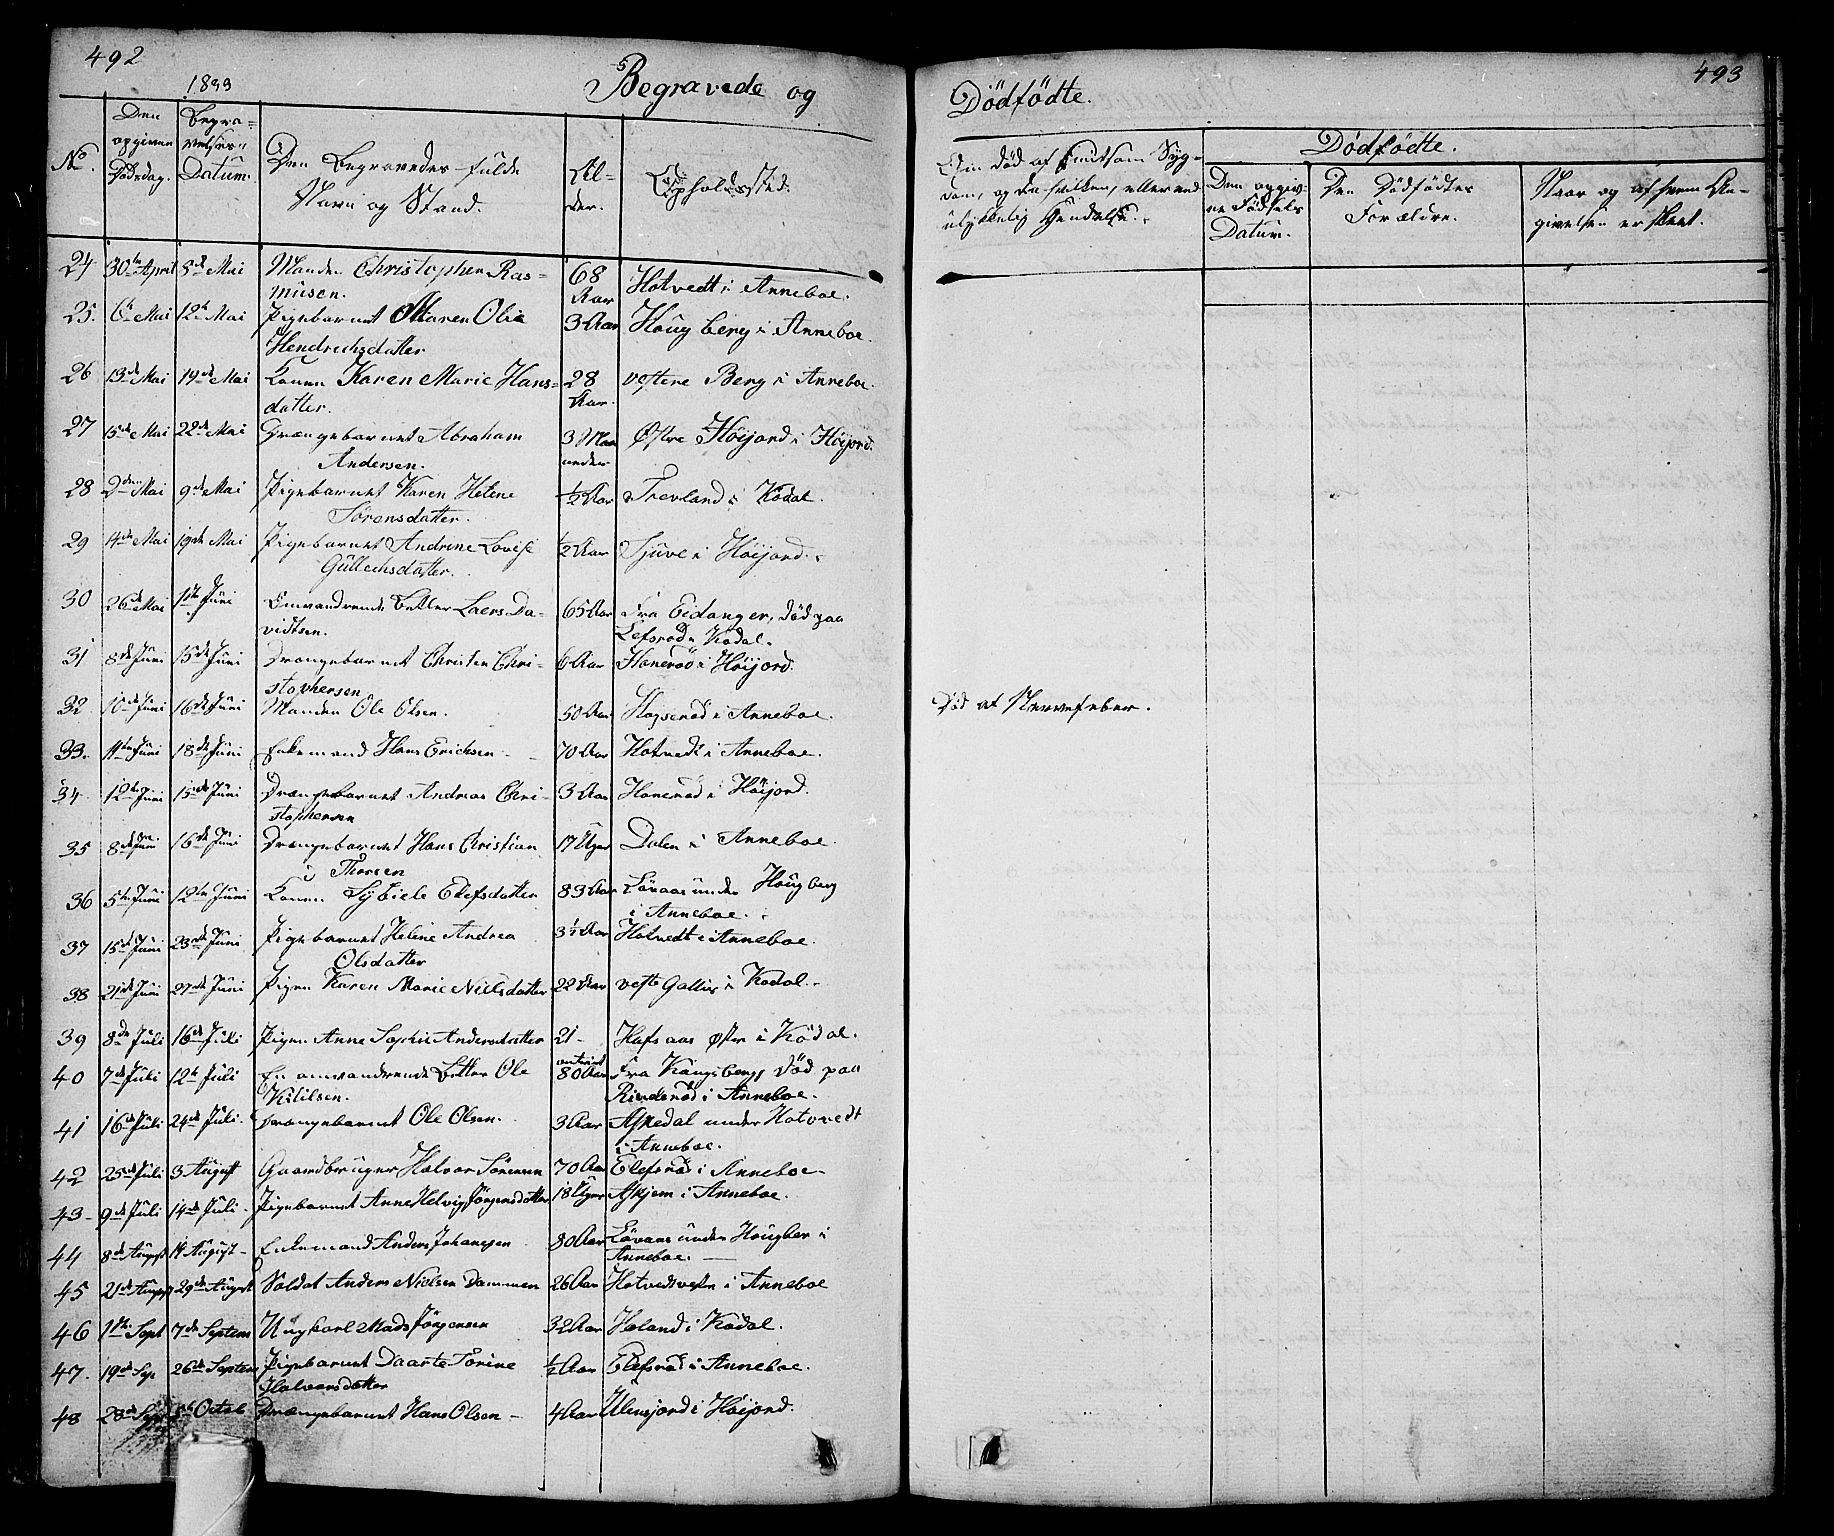 492
1833
Begravede og
No.
Den opgivne Dödsdag.
Begra=velses= Datum.
Den Begravedes fulde Navn og Stand.
Al=der.
Opholdssted.
24 30te April 5te Mai Manden Christopher Ras=
musen. 68 Aar Hotvedt i Anneboe.
25. 6te Mai 12te Mai Pigebarnet Maren Olia
Hendrichsdatter 3 Aar Houg berg i Anneboe.
26 13de Mai 19de Mai Konen Karen Marie Hans=
datter. 28 Aar. vestre Berg i Anneboe.
27 15de Mai 22de Mai Drængebarnet Abraham
Andersen. 3 Maaneder Østre Höijord i Höijord.
28 2den Mai 9de Mai Pigebarnet Karen Helene
Sörensdatter. 1/2 Aar Trevland i Kodal.
29 14de Mai 19de Mai Pigebarnet Andrine Lovise
Gullechsdatter. 1/2 Aar Sjuve i Höijord.
30 26de Mai 1te Juni Omvandrende Betler Laers Da=
vidtsen. 65 Aar Fra Eidanger, död paa
Lefsrød i Kodal.
31 8de Juni 15de Juni Drængebarnet Christen Chri=
stophersen 6 Aar Haneröd i Höijord.
32 10de Juni 16de Juni Manden Ole Olsen. 50 Aar i Anneboe.
33. 11te Juni 18de Juni Enkemand Hans Erichsen 70 Aar Hotvedt i Anneboe.
34. 12te Juni 15de Juni Drængebarnet Andreas Chri=
stophersen 3 Aar Haneröd i Höijord.
35 8de Juni 16de Juni Drængebarnet Hans Christian
Thorsen 17 Uger Dalen i Anneboe.
36 5te Juni 12te Juni Konen Sybiele Elefsdatter 83 Aar Lövaas under Hougberg
i Anneboe.
37 15de Juni 23de Juni Pigebarnet Helene Andrea
Olsdatter 3 1/2 Aar Hotvedt i Anneboe.
38 21de Juni 27de Juni Pigen Karen Marie Nielsdatter 22 Aar veste Gallis i Kodal.
39 8de Juli 16de Juli Pigen Anne Sophie Andersdatter 21 - Hafsaas Øster i Ködal.
40 7de Juli 12te Juli En omvandrende Betler Ole
Kitilsen. omtrent 80 Aar Fra Kongsberg, död paa
Rinderød i Anneboe.
41 16de Juli 24de Juli. Drængebarnet Ole Olsen. 3 Aar Askedal under Hotvedt
i Anneboe.
42 25de Juli 3 August Gaardbruger Halvor Sörensen 70 Aar Elefsröd i Anneboe.
43- 9de Juli 14de Juli. Pigebarnet Anne Helvig Jörgensdatter 18 Uger Askjem i Anneboe.
44 8de August 14 August Enkemand Anders Johannsen 80 Aar Lövaas under Hougber i
Anneboe.
45 21de August 29de August Soldat Anders Nielsen Dammen 26 Aar Hotvedt vestre i Anneboe
46 1te Sept 7de Septem Ungkarl Mads Jörgensen 32 Aar Holand i Kodal.
47. 19de Sep 26de Septem Pigebarnet Daarte Torine
Halvorsdatter 1/2 Aar Elefsröd i Anneboe.
48 28de Sept Octob Drængebarnet Hans Olsen - 4 Aar Ulensjord i Höijord.
493
Dödfödte.
Om död af smitsom Syg=
dom, og da hvilken, eller ved
ulykkelig Hendelse.
Dödfödte.
Den opgiv=
ne Födsels
Datum.
Den Dödfödtes
Forældre.
Naar og af hvem An=
givelsen er skeet.
Död af Nervefeber.